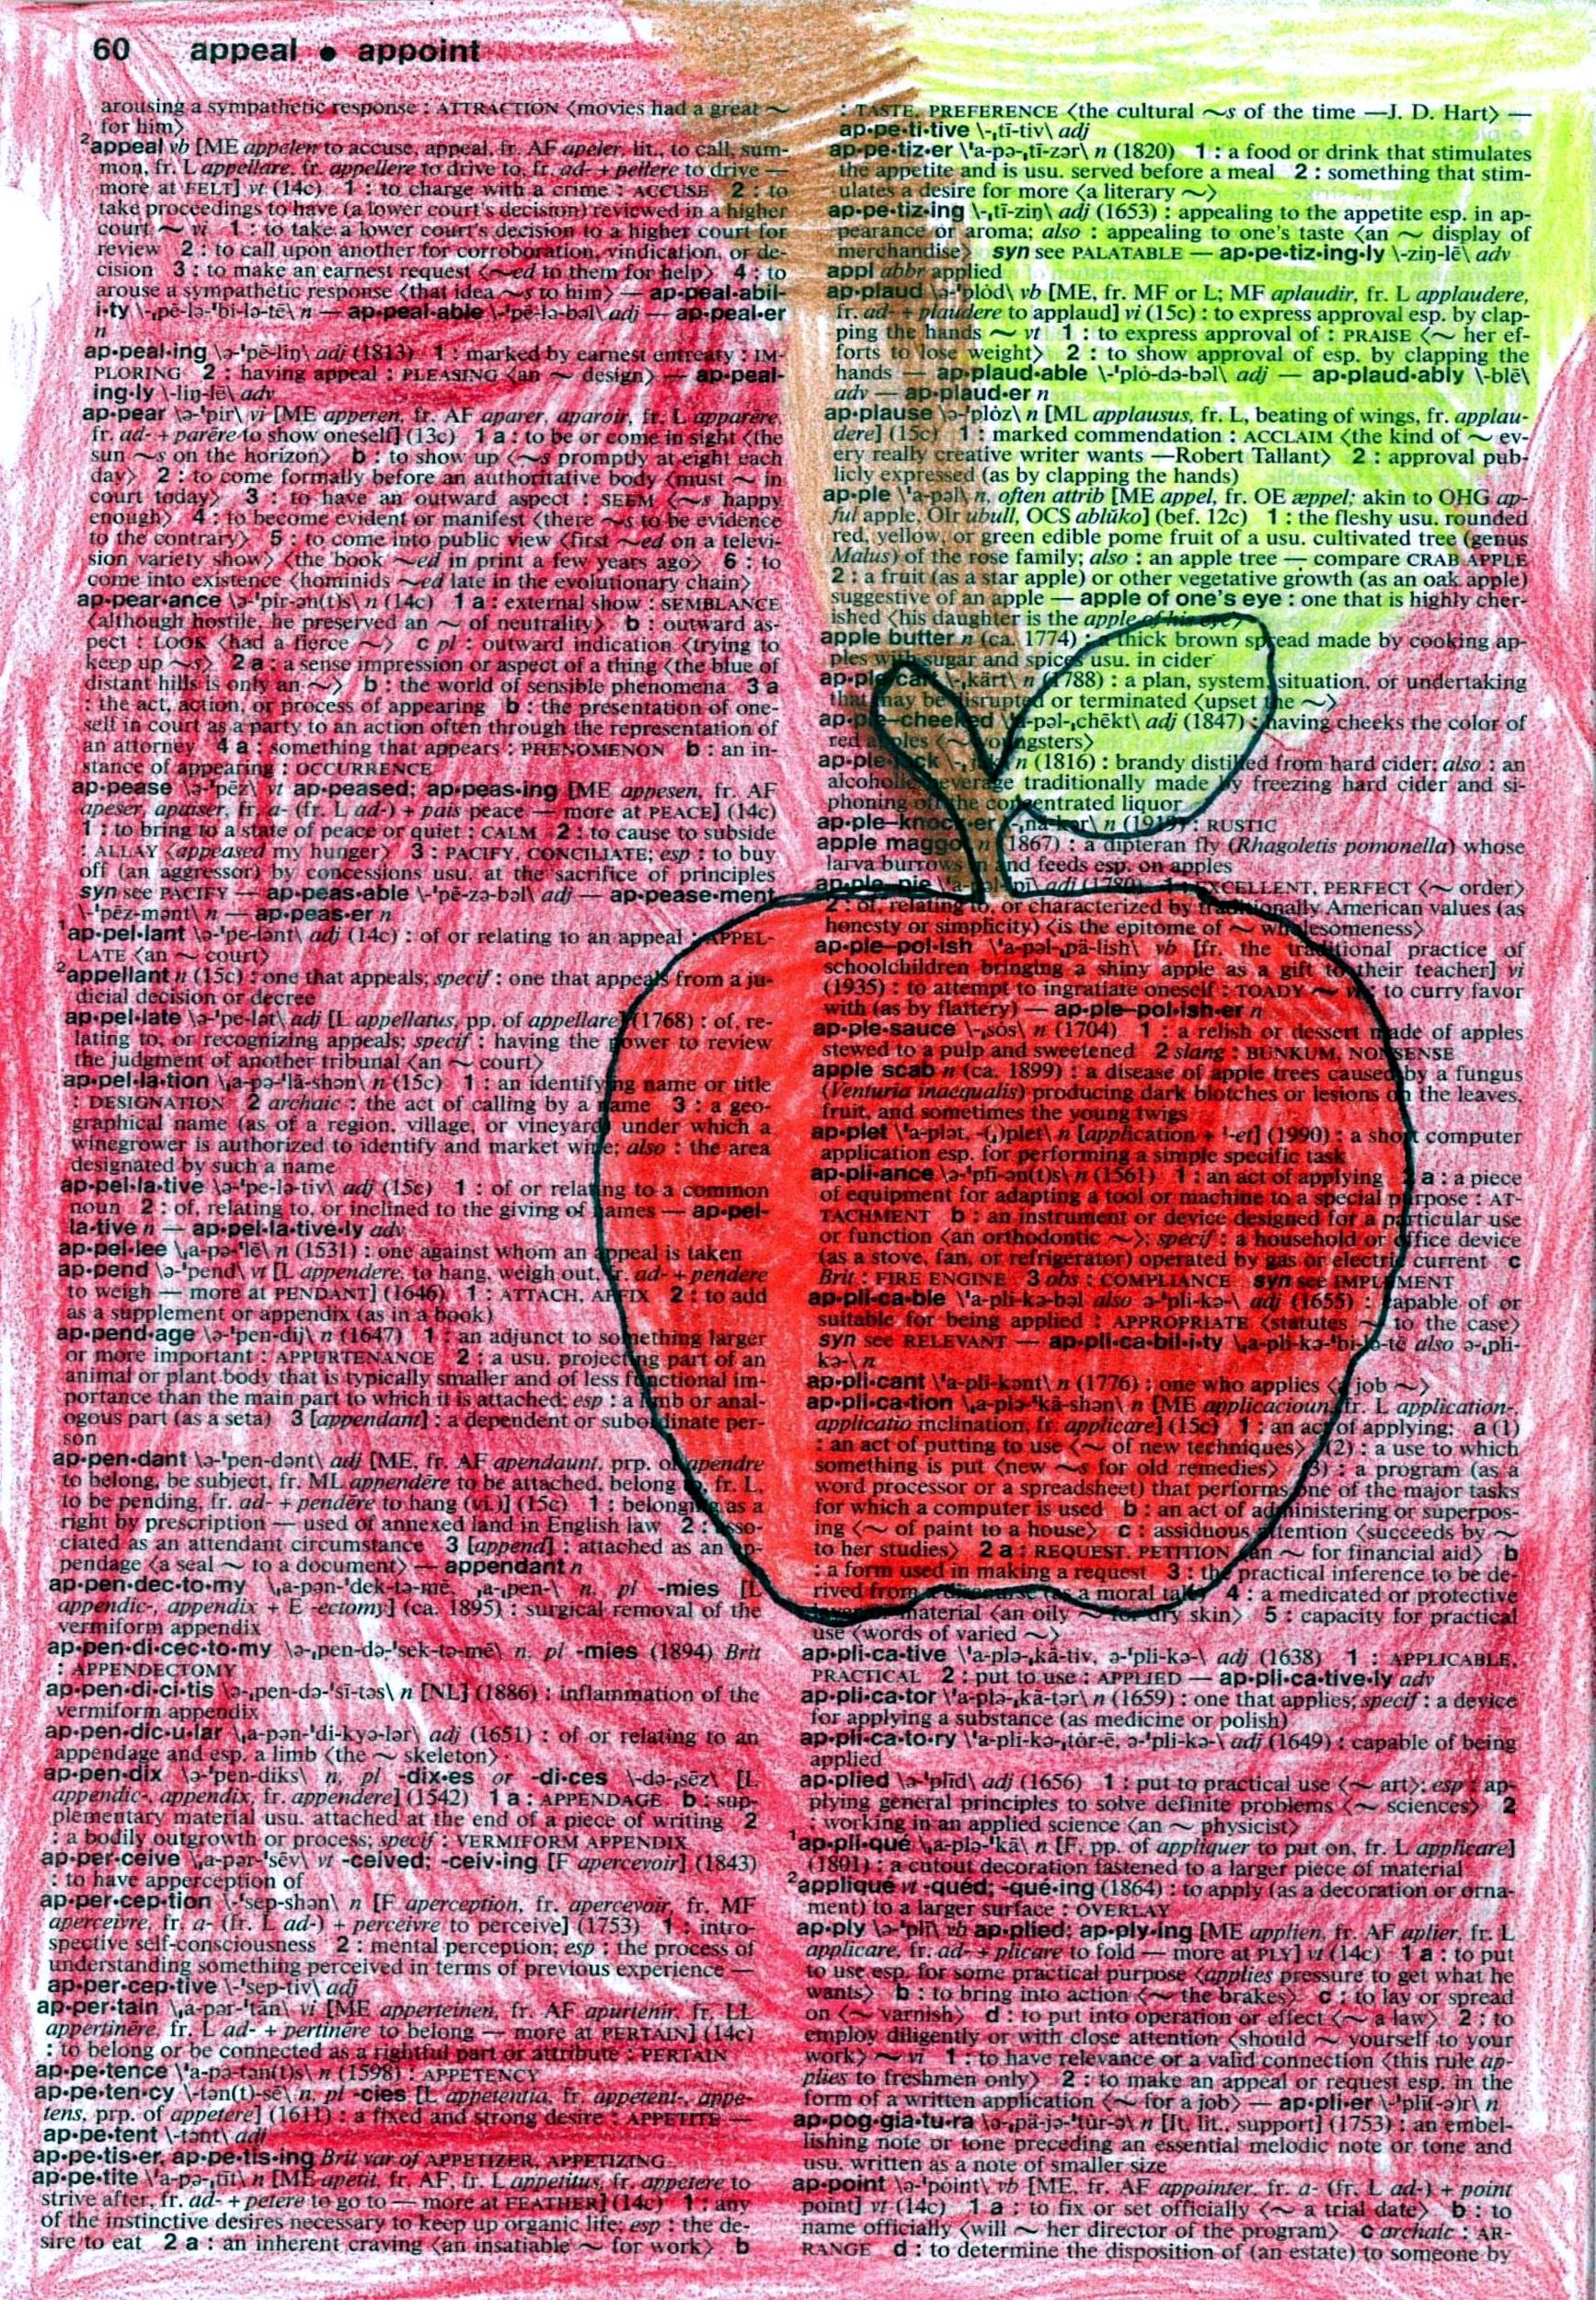 60 appeal • appoint
arousing a sympathetic response : ATTRACTION ⟨movies had a great ~
for him⟩
²appeal vb [ME appelen to accuse, appeal, fr. AF apeler, lit., to call, sum-
mon, fr. L appellare, fr. appellere to drive to, fr. ad- + pellere to drive —
more at FELT] vt (14c) 1 : to charge with a crime : ACCUSE 2 : to
take proceedings to have (a lower court's decision) reviewed in a higher
court ~ vi 1 : to take a lower court's decision to a higher court for
review 2 : to call upon another for corroboration, vindication, or de-
cision 3 : to make an earnest request ⟨~ed to them for help⟩ 4 : to
arouse a sympathetic response ⟨that idea ~s to him⟩ — ap·peal·abil-
i·ty \-ˌpē-lə-ˈbi-lə-tē\ n — ap·peal·able \-ˈpē-lə-bəl\ adj — ap·peal·er
n
ap·peal·ing \ə-ˈpē-liŋ\ adj (1813) 1 : marked by earnest entreaty : IM-
PLORING 2 : having appeal : PLEASING ⟨an ~ design⟩ — ap·peal-
ing·ly \-liŋ-lē\ adv
ap·pear \ə-ˈpir\ vi [ME apperen, fr. AF aparer, aparoir, fr. L apparēre,
fr. ad- + parēre to show oneself] (13c) 1 a : to be or come in sight ⟨the
sun ~s on the horizon⟩ b : to show up ⟨~s promptly at eight each
day⟩ 2 : to come formally before an authoritative body ⟨must ~ in
court today⟩ 3 : to have an outward aspect : SEEM ⟨~s happy
enough⟩ 4 : to become evident or manifest ⟨there ~s to be evidence
to the contrary⟩ 5 : to come into public view ⟨first ~ed on a televi-
sion variety show⟩ ⟨the book ~ed in print a few years ago⟩ 6 : to
come into existence ⟨hominids ~ed late in the evolutionary chain⟩
ap·pear·ance \ə-ˈpir-ən(t)s\ n (14c) 1 a : external show : SEMBLANCE
⟨although hostile, he preserved an ~ of neutrality⟩ b : outward as-
pect : LOOK ⟨had a fierce ~⟩ c pl : outward indication ⟨trying to
keep up ~s⟩ 2 a : a sense impression or aspect of a thing ⟨the blue of
distant hills is only an ~⟩ b : the world of sensible phenomena 3 a
: the act, action, or process of appearing b : the presentation of one-
self in court as a party to an action often through the representation of
an attorney 4 a : something that appears : PHENOMENON b : an in-
stance of appearing : OCCURRENCE
ap·pease \ə-ˈpēz\ vt ap·peased; ap·peas·ing [ME appesen, fr. AF
apeser, apaiser, fr. a- (fr. L ad-) + pais peace — more at PEACE] (14c)
1 : to bring to a state of peace or quiet : CALM 2 : to cause to subside
: ALLAY ⟨appeased my hunger⟩ 3 : PACIFY, CONCILIATE; esp : to buy
off (an aggressor) by concessions usu. at the sacrifice of principles
syn see PACIFY — ap·peas·able \-ˈpē-zə-bəl\ adj — ap·pease·ment
\-ˈpēz-mənt\ n — ap·peas·er n
¹ap·pel·lant \ə-ˈpe-lənt\ adj (14c) : of or relating to an appeal : APPEL-
LATE ⟨an ~ court⟩
²appellant n (15c) : one that appeals; specif : one that appeals from a ju-
dicial decision or decree
ap·pel·late \ə-ˈpe-lət\ adj [L appellatus, pp. of appellare] (1768) : of, re-
lating to, or recognizing appeals; specif : having the power to review
the judgment of another tribunal ⟨an ~ court⟩
ap·pel·la·tion \ˌa-pə-ˈlā-shən\ n (15c) 1 : an identifying name or title
: DESIGNATION 2 archaic : the act of calling by a name 3 : a geo-
graphical name (as of a region, village, or vineyard) under which a
winegrower is authorized to identify and market wine; also : the area
designated by such a name
ap·pel·la·tive \ə-ˈpe-lə-tiv\ adj (15c) 1 : of or relating to a common
noun 2 : of, relating to, or inclined to the giving of names — ap·pel-
la·tive n — ap·pel·la·tive·ly adv
ap·pel·lee \ˌa-pə-ˈlē\ n (1531) : one against whom an appeal is taken
ap·pend \ə-ˈpend\ vt [L appendere, to hang, weigh out, fr. ad- + pendere
to weigh — more at PENDANT] (1646) 1 : ATTACH, AFFIX 2 : to add
as a supplement or appendix (as in a book)
ap·pend·age \ə-ˈpen-dij\ n (1647) 1 : an adjunct to something larger
or more important : APPURTENANCE 2 : a usu. projecting part of an
animal or plant body that is typically smaller and of less functional im-
portance than the main part to which it is attached; esp : a limb or anal-
ogous part (as a seta) 3 [appendant] : a dependent or subordinate per-
son
ap·pen·dant \ə-ˈpen-dənt\ adj [ME, fr. AF apendaunt, prp. of apendre
to belong, be subject, fr. ML appendēre to be attached, belong to, fr. L,
to be pending, fr. ad- + pendēre to hang (vi.)] (15c) 1 : belonging as a
right by prescription — used of annexed land in English law 2 : asso-
ciated as an attendant circumstance 3 [append] : attached as an ap-
pendage ⟨a seal ~ to a document⟩ — appendant n
ap·pen·dec·to·my \ˌa-pən-ˈdek-tə-mē, ˌa-ˌpen-\ n, pl -mies [L
appendic-, appendix + E -ectomy] (ca. 1895) : surgical removal of the
vermiform appendix
ap·pen·di·cec·to·my \ə-ˌpen-də-ˈsek-tə-mē\ n, pl -mies (1894) Brit
: APPENDECTOMY
ap·pen·di·ci·tis \ə-ˌpen-də-ˈsī-təs\ n [NL] (1886) : inflammation of the
vermiform appendix
ap·pen·dic·u·lar \ˌa-pən-ˈdi-kyə-lər\ adj (1651) : of or relating to an
appendage and esp. a limb ⟨the ~ skeleton⟩
ap·pen·dix \ə-ˈpen-diks\ n, pl -dix·es or -di·ces \-də-ˌsēz\ [L
appendic-, appendix, fr. appendere] (1542) 1 a : APPENDAGE b : sup-
plementary material usu. attached at the end of a piece of writing 2
: a bodily outgrowth or process; specif : VERMIFORM APPENDIX
ap·per·ceive \ˌa-pər-ˈsēv\ vt -ceived; -ceiv·ing [F apercevoir] (1843)
: to have apperception of
ap·per·cep·tion \-ˈsep-shən\ n [F aperception, fr. apercevoir, fr. MF
aperceivre, fr. a- (fr. L ad-) + perceivre to perceive] (1753) 1 : intro-
spective self-consciousness 2 : mental perception; esp : the process of
understanding something perceived in terms of previous experience —
ap·per·cep·tive \-ˈsep-tiv\ adj
ap·per·tain \ˌa-pər-ˈtān\ vi [ME apperteinen, fr. AF apurtenir, fr. LL
appertinēre, fr. L ad- + pertinēre to belong — more at PERTAIN] (14c)
: to belong or be connected as a rightful part or attribute : PERTAIN
ap·pe·tence \ˈa-pə-tən(t)s\ n (1598) : APPETENCY
ap·pe·ten·cy \-tən(t)-sē\ n, pl -cies [L appetentia, fr. appetent-, appe-
tens, prp. of appetere] (1611) : a fixed and strong desire : APPETITE —
ap·pe·tent \-tənt\ adj
ap·pe·tis·er, ap·pe·tis·ing Brit var of APPETIZER, APPETIZING
ap·pe·tite \ˈa-pə-ˌtīt\ n [ME apetit, fr. AF, fr. L appetitus, fr. appetere to
strive after, fr. ad- + petere to go to — more at FEATHER] (14c) 1 : any
of the instinctive desires necessary to keep up organic life; esp : the de-
sire to eat 2 a : an inherent craving ⟨an insatiable ~ for work⟩ b
: TASTE, PREFERENCE ⟨the cultural ~s of the time —J. D. Hart⟩ —
ap·pe·ti·tive \-ˌtī-tiv\ adj
ap·pe·tiz·er \ˈa-pə-ˌtī-zər\ n (1820) 1 : a food or drink that stimulates
the appetite and is usu. served before a meal 2 : something that stim-
ulates a desire for more ⟨a literary ~⟩
ap·pe·tiz·ing \-ˌtī-ziŋ\ adj (1653) : appealing to the appetite esp. in ap-
pearance or aroma; also : appealing to one's taste ⟨an ~ display of
merchandise⟩ syn see PALATABLE — ap·pe·tiz·ing·ly \-ziŋ-lē\ adv
appl abbr applied
ap·plaud \ə-ˈplȯd\ vb [ME, fr. MF or L; MF aplaudir, fr. L applaudere,
fr. ad- + plaudere to applaud] vi (15c) : to express approval esp. by clap-
ping the hands ~ vt 1 : to express approval of : PRAISE ⟨~ her ef-
forts to lose weight⟩ 2 : to show approval of esp. by clapping the
hands — ap·plaud·able \-ˈplȯ-də-bəl\ adj — ap·plaud·ably \-blē\
adv — ap·plaud·er n
ap·plause \ə-ˈplȯz\ n [ML applausus, fr. L, beating of wings, fr. applau-
dere] (15c) 1 : marked commendation : ACCLAIM ⟨the kind of ~ ev-
ery really creative writer wants —Robert Tallant⟩ 2 : approval pub-
licly expressed (as by clapping the hands)
ap·ple \ˈa-pəl\ n, often attrib [ME appel, fr. OE æppel; akin to OHG ap-
ful apple, OIr ubull, OCS ablŭko] (bef. 12c) 1 : the fleshy usu. rounded
red, yellow, or green edible pome fruit of a usu. cultivated tree (genus
Malus) of the rose family; also : an apple tree — compare CRAB APPLE
2 : a fruit (as a star apple) or other vegetative growth (as an oak apple)
suggestive of an apple — apple of one's eye : one that is highly cher-
ished ⟨his daughter is the apple of his eye⟩
apple butter n (ca. 1774) : a thick brown spread made by cooking ap-
ples with sugar and spices usu. in cider
ap·ple·cart \-ˌkärt\ n (1788) : a plan, system, situation, or undertaking
that may be disrupted or terminated ⟨upset the ~⟩
ap·ple–cheeked \ˈa-pəl-ˌchēkt\ adj (1847) : having cheeks the color of
red apples ⟨~ youngsters⟩
ap·ple·jack \-ˌjak\ n (1816) : brandy distilled from hard cider; also : an
alcoholic beverage traditionally made by freezing hard cider and si-
phoning off the concentrated liquor
ap·ple–knock·er \-ˌnä-kər\ n (1919) : RUSTIC
apple maggot n (1867) : a dipteran fly (Rhagoletis pomonella) whose
larva burrows in and feeds esp. on apples
ap·ple–pie \ˈa-pəl-ˌpī\ adj (1780) 1 : EXCELLENT, PERFECT ⟨~ order⟩
2 : of, relating to, or characterized by traditionally American values (as
honesty or simplicity) ⟨is the epitome of ~ wholesomeness⟩
ap·ple–pol·ish \ˈa-pəl-ˌpä-lish\ vb [fr. the traditional practice of
schoolchildren bringing a shiny apple as a gift to their teacher] vi
(1935) : to attempt to ingratiate oneself : TOADY ~ vt : to curry favor
with (as by flattery) — ap·ple–pol·ish·er n
ap·ple·sauce \-ˌsȯs\ n (1704) 1 : a relish or dessert made of apples
stewed to a pulp and sweetened 2 slang : BUNKUM, NONSENSE
apple scab n (ca. 1899) : a disease of apple trees caused by a fungus
(Venturia inaequalis) producing dark blotches or lesions on the leaves,
fruit, and sometimes the young twigs
ap·plet \ˈa-plət, -(ˌ)plet\ n [application + ¹-et] (1990) : a short computer
application esp. for performing a simple specific task
ap·pli·ance \ə-ˈplī-ən(t)s\ n (1561) 1 : an act of applying 2 a : a piece
of equipment for adapting a tool or machine to a special purpose : AT-
TACHMENT b : an instrument or device designed for a particular use
or function ⟨an orthodontic ~⟩; specif : a household or office device
(as a stove, fan, or refrigerator) operated by gas or electric current c
Brit : FIRE ENGINE 3 obs : COMPLIANCE syn see IMPLEMENT
ap·pli·ca·ble \ˈa-pli-kə-bəl also ə-ˈpli-kə-\ adj (1655) : capable of or
suitable for being applied : APPROPRIATE ⟨statutes ~ to the case⟩
syn see RELEVANT — ap·pli·ca·bil·i·ty \ˌa-pli-kə-ˈbi-lə-tē also ə-ˌpli-
kə-\ n
ap·pli·cant \ˈa-pli-kənt\ n (1776) : one who applies ⟨a job ~⟩
ap·pli·ca·tion \ˌa-plə-ˈkā-shən\ n [ME applicacioun, fr. L application-,
applicatio inclination, fr. applicare] (15c) 1 : an act of applying: a (1)
: an act of putting to use ⟨~ of new techniques⟩ (2) : a use to which
something is put ⟨new ~s for old remedies⟩ (3) : a program (as a
word processor or a spreadsheet) that performs one of the major tasks
for which a computer is used b : an act of administering or superpos-
ing ⟨~ of paint to a house⟩ c : assiduous attention ⟨succeeds by ~
to her studies⟩ 2 a : REQUEST, PETITION ⟨an ~ for financial aid⟩ b
: a form used in making a request 3 : the practical inference to be de-
rived from a discourse (as a moral tale) 4 : a medicated or protective
layer or material ⟨an oily ~ for dry skin⟩ 5 : capacity for practical
use ⟨words of varied ~⟩
ap·pli·ca·tive \ˈa-plə-ˌkā-tiv, ə-ˈpli-kə-\ adj (1638) 1 : APPLICABLE,
PRACTICAL 2 : put to use : APPLIED — ap·pli·ca·tive·ly adv
ap·pli·ca·tor \ˈa-plə-ˌkā-tər\ n (1659) : one that applies; specif : a device
for applying a substance (as medicine or polish)
ap·pli·ca·to·ry \ˈa-pli-kə-ˌtȯr-ē, ə-ˈpli-kə-\ adj (1649) : capable of being
applied
ap·plied \ə-ˈplīd\ adj (1656) 1 : put to practical use ⟨~ art⟩; esp : ap-
plying general principles to solve definite problems ⟨~ sciences⟩ 2
: working in an applied science ⟨an ~ physicist⟩
¹ap·pli·qué \ˌa-plə-ˈkā\ n [F, pp. of appliquer to put on, fr. L applicare]
(1801) : a cutout decoration fastened to a larger piece of material
²appliqué vt -quéd; -qué·ing (1864) : to apply (as a decoration or orna-
ment) to a larger surface : OVERLAY
ap·ply \ə-ˈplī\ vb ap·plied; ap·ply·ing [ME applien, fr. AF aplier, fr. L
applicare, fr. ad- + plicare to fold — more at PLY] vt (14c) 1 a : to put
to use esp. for some practical purpose ⟨applies pressure to get what he
wants⟩ b : to bring into action ⟨~ the brakes⟩ c : to lay or spread
on ⟨~ varnish⟩ d : to put into operation or effect ⟨~ a law⟩ 2 : to
employ diligently or with close attention ⟨should ~ yourself to your
work⟩ ~ vi 1 : to have relevance or a valid connection ⟨this rule ap-
plies to freshmen only⟩ 2 : to make an appeal or request esp. in the
form of a written application ⟨~ for a job⟩ — ap·pli·er \-ˈplī(-ə)r\ n
ap·pog·gia·tu·ra \ə-ˌpä-jə-ˈtu̇r-ə\ n [It, lit., support] (1753) : an embel-
lishing note or tone preceding an essential melodic note or tone and
usu. written as a note of smaller size
ap·point \ə-ˈpȯint\ vb [ME, fr. AF appointer, fr. a- (fr. L ad-) + point
point] vt (14c) 1 a : to fix or set officially ⟨~ a trial date⟩ b : to
name officially ⟨will ~ her director of the program⟩ c archaic : AR-
RANGE d : to determine the disposition of (an estate) to someone by